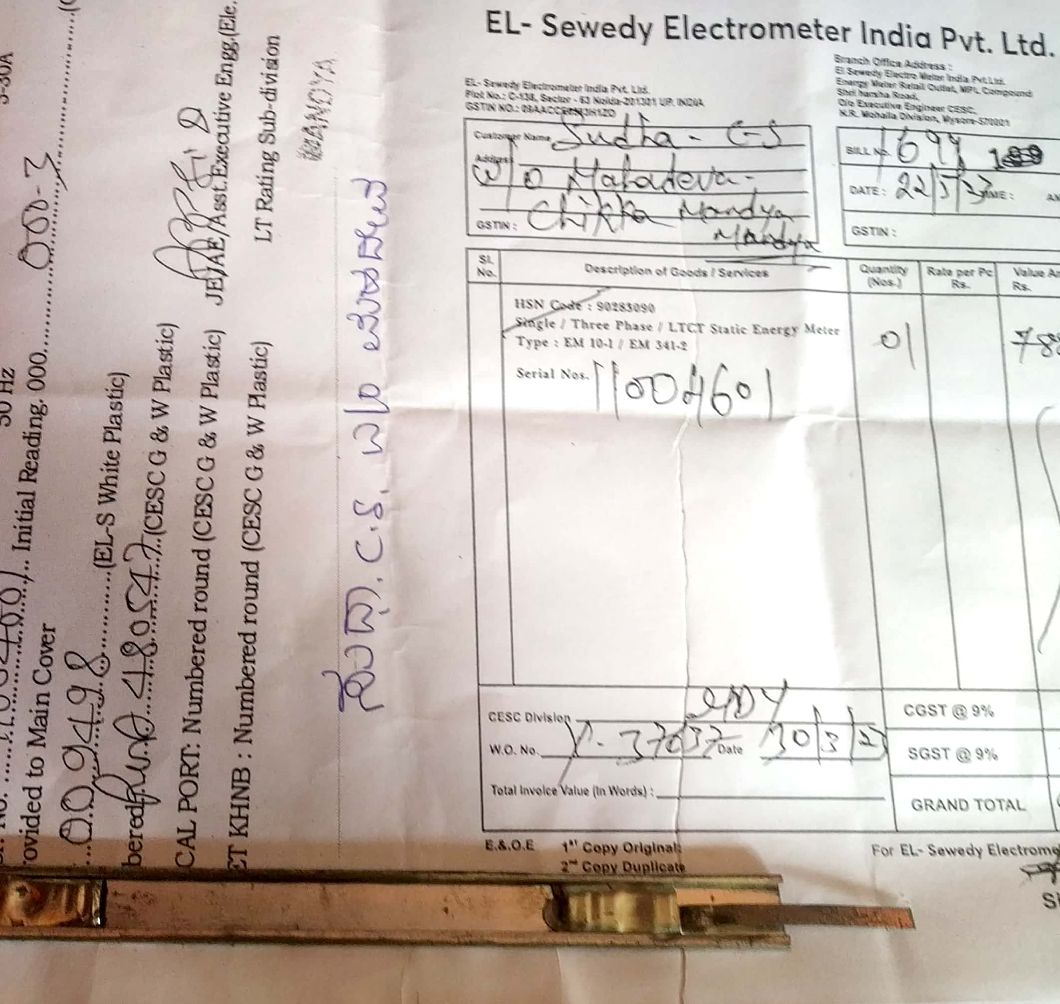 EL- Sewedy Electrometer India Pvt. Ltd.
EL- Sewedy Electrometer India Pvt. Ltd.
Plot No.: C-138, Sector - 63 Noida-201301 UP, INDIA
GSTIN NO.:
Branch Office Address :
El Sewedy Electro Meter India Pvt.Ltd.
Energy Meter Retail Outlet, MPL Compound
Shri harsha Road,
O/o Executive Engineer CESC,
N.R. Mohalla Division, Mysore-570001
Customer Name Sudha - C-S
Address W/o Mahadeva-
Chikka Mandya
Mandya
GSTIN :
BILL No. 1699
DATE : 22/5/23
GSTIN :
Sl. No. Description of Goods / Services Quantity (Nos.) Rate per Pc Rs. Value Rs.
HSN Code : 90283090
Single / Three Phase / LTCT Static Energy Meter
Type : EM 10-1 / EM 341-2
01
Serial Nos. 11004601
CESC Division
W.O. No. Date 30/3/2
Total Invoice Value (In Words) :
CGST @ 9%
SGST @ 9%
GRAND TOTAL
E.&.O.E 1st Copy Original:
2nd Copy Duplicate
For EL- Sewedy Electrome
5-30A
50 Hz
Initial Reading. 000 000-3
rovided to Main Cover
009498 (EL-S White Plastic)
bered 480547 (CESC G & W Plastic)
CAL PORT: Numbered round (CESC G & W Plastic)
ET KHNB : Numbered round (CESC G & W Plastic)
JE/AE/Asst.Executive Engg.(Ele.
LT Rating Sub-division
MANDYA
ಸುಧಾ. C.S. W/o ಮಹದೇವ